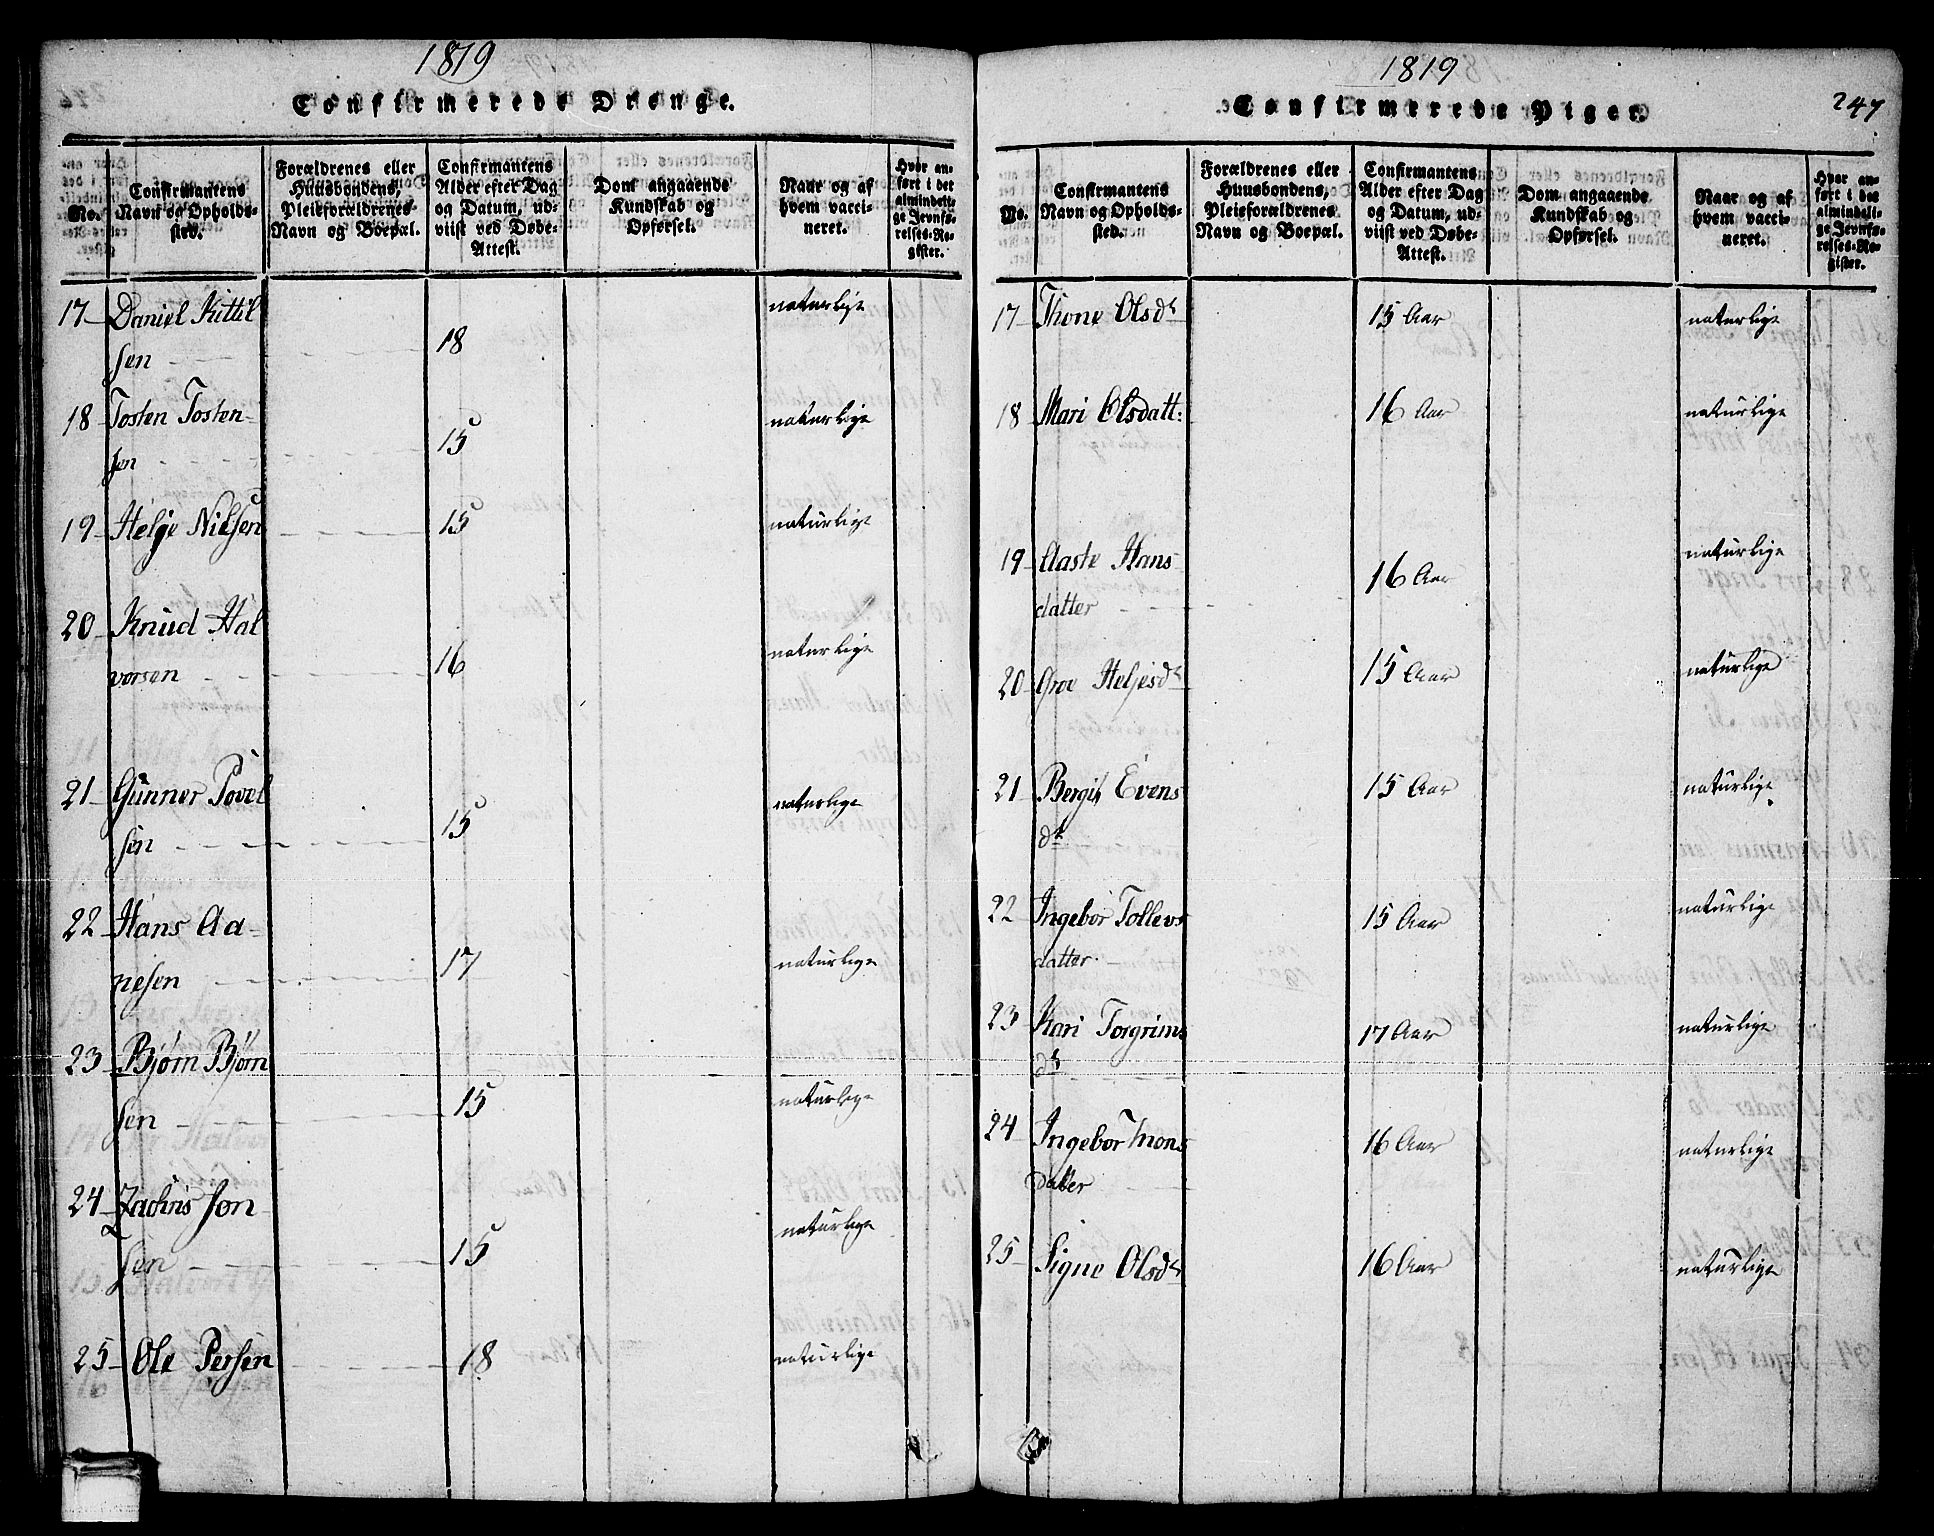 1819
Confirmerede Drenge.
No.
Confirmantens Navn og Opholds-sted.
Forældrenes eller Huusbondens, Pleieforældrenes Navn og Boepæl.
Confirmantens Alder efter Dag og Datum, ud-viist ved Døbe-Attest.
Dom angaaende Kundskab og Opførsel.
Naar og af hvem vacci-neret.
Hvor an-ført i det almindeli-ge Jevnfø-relses-Re-gister.
17 Daniel Kittil naturlige
sen 18
18 Tosten Tosten- naturlige
sen 15
19 Helge Nilsen 15 naturlige
20 Knud Hal naturlige
vorsen 16
21 Gunner Povel naturlige
sen 15
22 Hans Aa- naturlige
nesen 17
23 Bjørn Bjørn naturlige
sen 15
24 Zachris Jon naturlige
sen 15
25 Ole Persen 18 naturlige
1819
Confirmerede Piger.
247
No.
Confirmantens Navn og Opholds-sted.
Forældrenes eller Huusbondens, Pleieforældrenes Navn og Boepæl.
Confirmantens Alder efter Dag og Datum, ud-viist ved Døbe-Attest.
Dom angaaende Kundskab og Opførsel.
Naar og af hvem vacci-neret.
Hvor an-ført i det almindeli-ge Jevnfø-relses-Re-gister.
17 Thone Olsdr 15 Aar naturlige
18 Mari Olsdatt: 16 Aar naturlige
19 Aaste Hans 16 Aar naturlige
datter
20 Groe Heljesdr 15 Aar naturlige
21 Bergit Evens 15 Aar naturlige
dr
22 Ingebor Tollevs 15 Aar naturlige
datter
23 Kari Torgrims 17 Aar naturlige
dr
24 Ingebor Thons 16 Aar naturlige
datter
25 Signe Olsdr 16 Aar naturlige